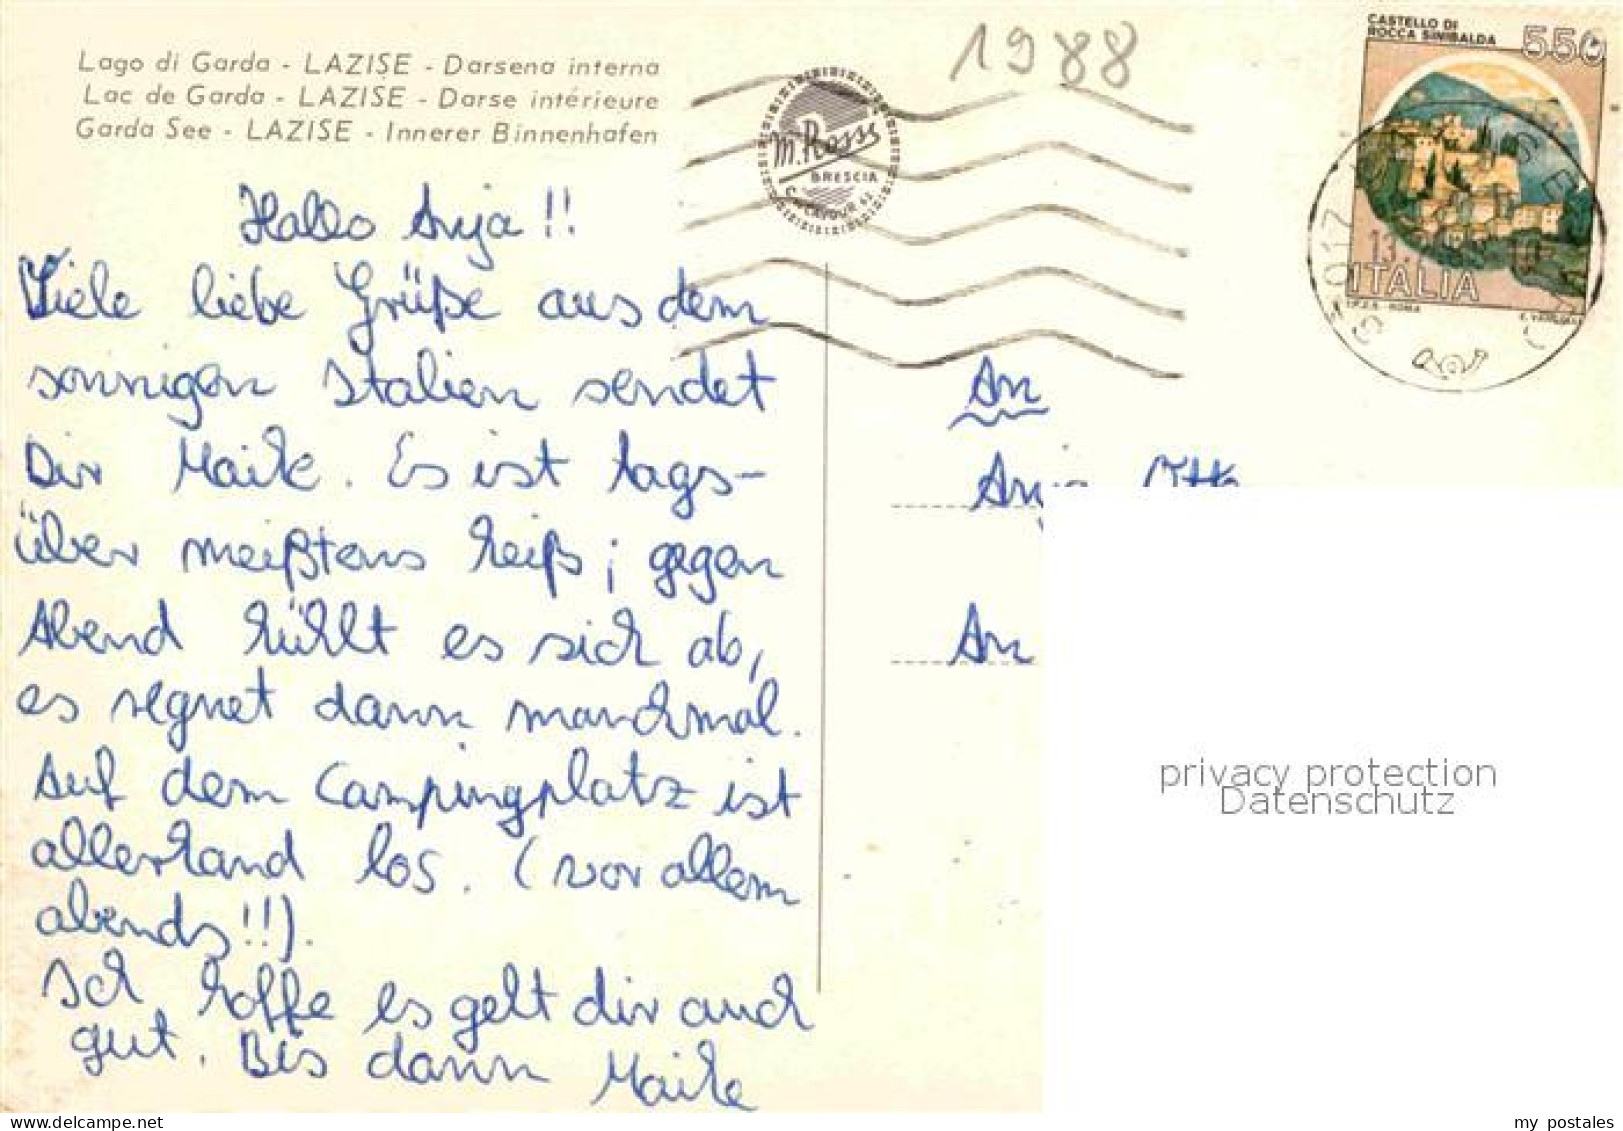 Lago di Garda - LAZISE - Darsena interna
Lac de Garda - LAZISE - Darse intérieure
Garda See - LAZISE - Innerer Binnenhafen
1988
M. Rossi
BRESCIA
CASTELLO DI
ROCCA SINIBALDA
550
ITALIA
I.P.Z.S. - ROMA
Hallo Anja !!
Viele liebe Grüße aus dem
sonnigen Italien sendet
Dir Maike. Es ist tags-
über meißtens heiß; gegen
Abend kühlt es sich ab,
es regnet dann manchmal.
Auf dem Campingplatz ist
allerhand los. (vor allem
abends!!).
Ich hoffe es geht dir auch
gut. Bis dann Maike
An
Anja
An
privacy protection
Datenschutz
my postales